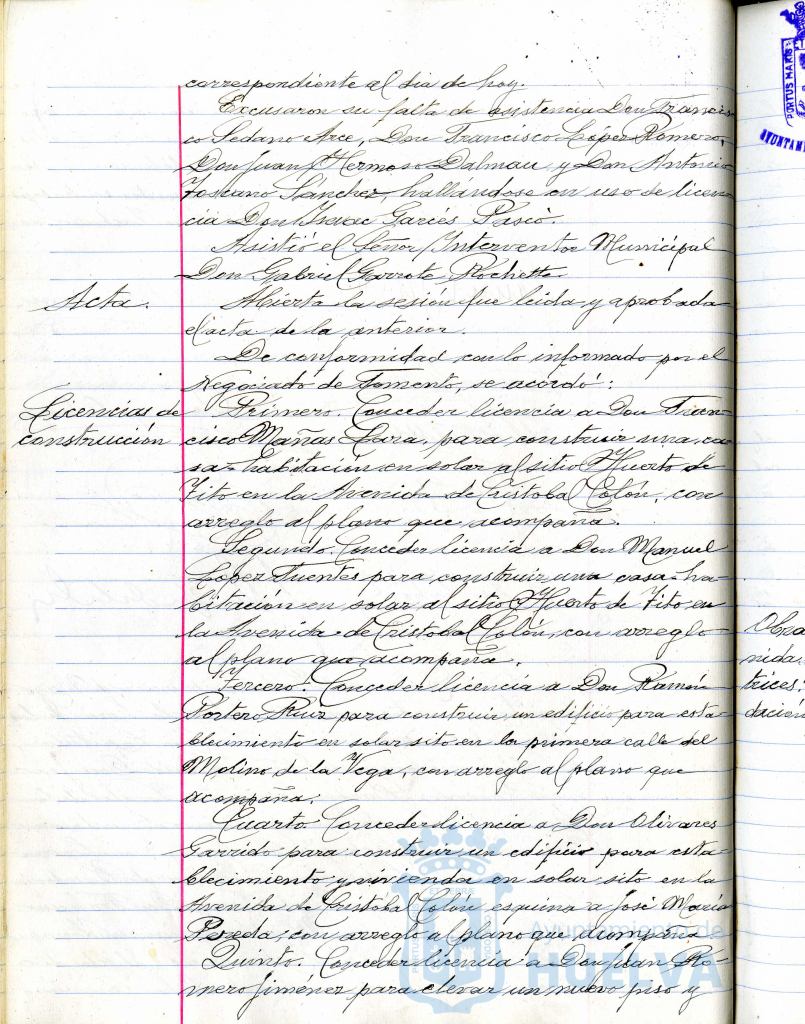 correspondiente al dia de hoy.
Excusaron su falta de asistencia Don Francis-
co Sedano Arce, Don Francisco López Romero,
Don Juan Hermoso Dalmau y Don Antonio
Toscano Sánchez, hallandose en uso de licen-
cia Don Garcés Pascó.
Asistió el Señor Interventor Municipal
Don Gabriel Garrote Rochette.
Acta.
Abierta la sesión fue leida y aprobada
el acta de la anterior.
De conformidad con lo informado por el
Negociado de Fomento, se acordó:
Licencias de
construcción
Primero. Conceder licencia a Don Fran-
cisco Mañas Lara, para construir una ca-
sa-habitación en solar al sitio Huerto de
Tito en la Avenida de Cristobal Colón, con
arreglo al plano que acompaña.
Segundo. Conceder licencia a Don Manuel
López Fuentes para construir una casa-ha-
bitación en solar al sitio Huerto de Tito en
la Avenida de Cristobal Colón, con arreglo
al plano que acompaña.
Tercero. Conceder licencia a Don Ramón
Portero Ruiz para construir un edificio para esta-
blecimiento en solar sito en la primera calle del
Molino de la Vega, con arreglo al plano que
acompaña.
Cuarto. Conceder licencia a Don Olivares
Garrido para construir un edificio para esta-
blecimiento y vivienda en solar sito en la
Avenida de Cristobal Colón esquina a José Maria
Pereda, con arreglo al plano que acompaña
Quinto. Conceder licencia a Don Juan Ro-
mero Jiménez para elevar un nuevo piso y
Ayuntamiento de
HUELVA
PORTUS MARIS
AYUNTAM
Obra
nida
trices:
dación